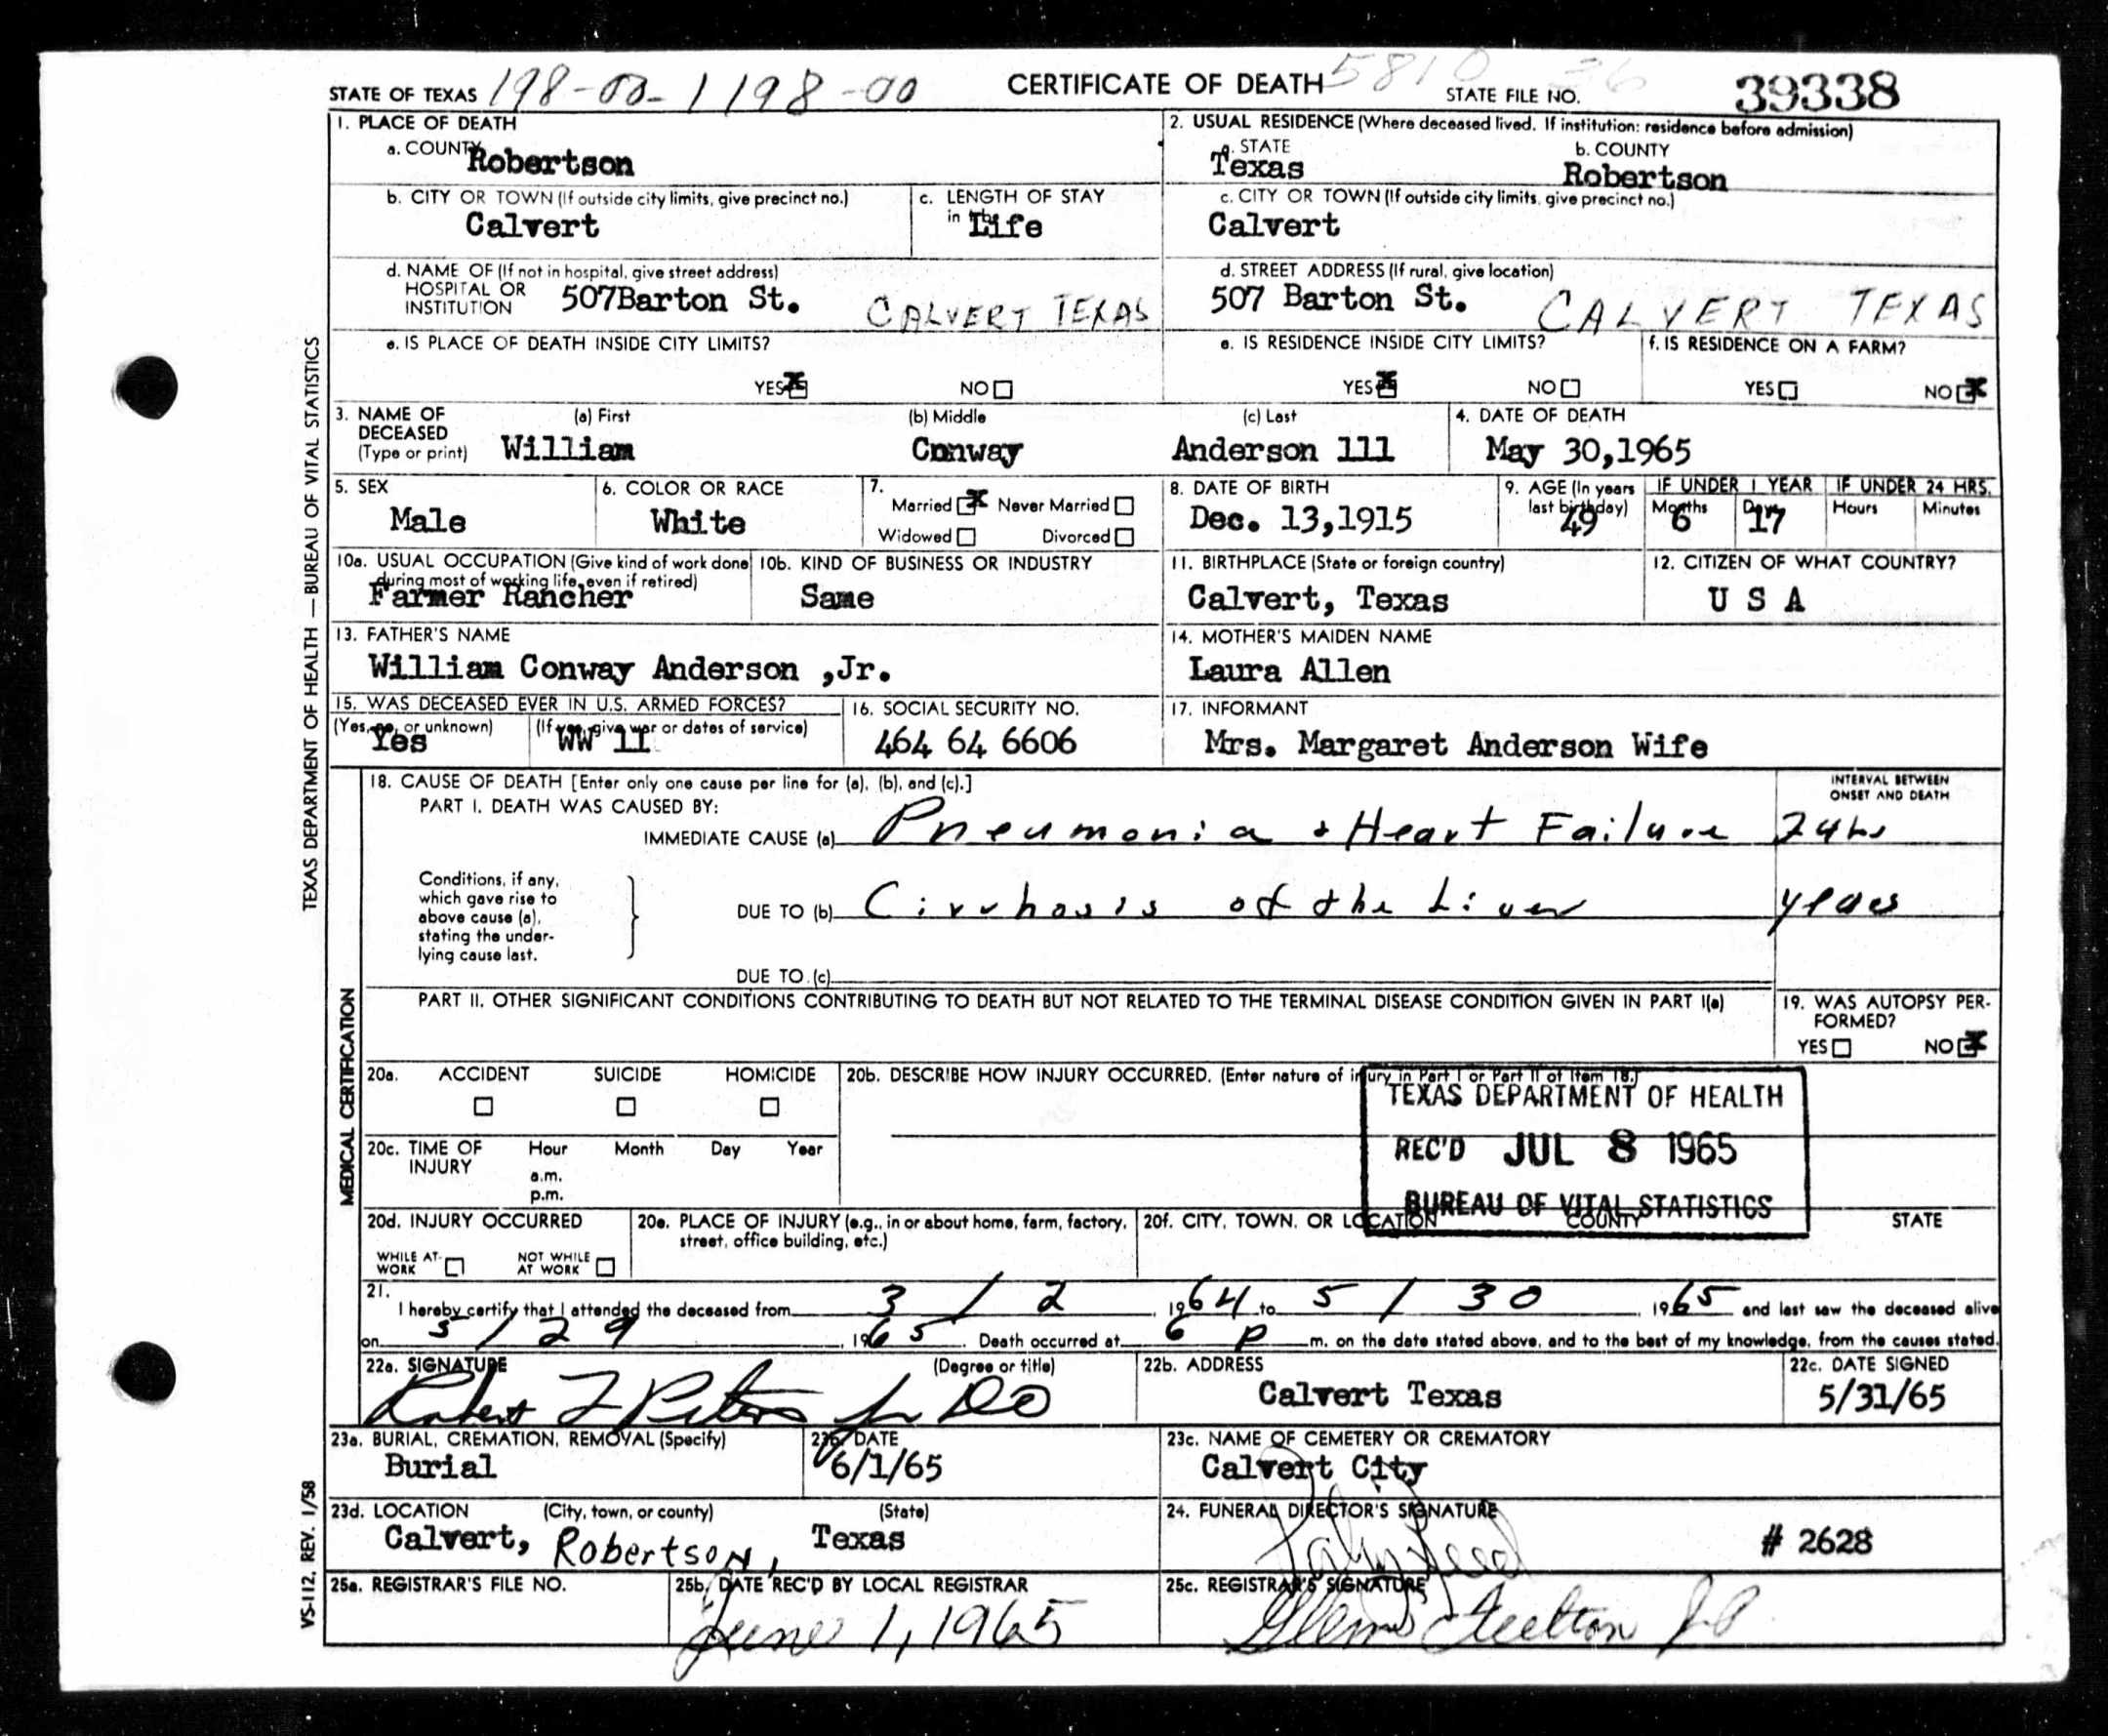 STATE OF TEXAS 198-00-1198-00 CERTIFICATE OF DEATH 5810 36 STATE FILE NO. 39338
1. PLACE OF DEATH
a. COUNTY Robertson
2. USUAL RESIDENCE (Where deceased lived. If institution: residence before admission)
a. STATE Texas b. COUNTY Robertson
b. CITY OR TOWN (If outside city limits, give precinct no.) Calvert
c. LENGTH OF STAY in Life
c. CITY OR TOWN (If outside city limits, give precinct no.) Calvert
d. NAME OF (If not in hospital, give street address) HOSPITAL OR INSTITUTION 507Barton St. CALVERT TEXAS
d. STREET ADDRESS (If rural, give location) 507 Barton St. CALVERT TEXAS
e. IS PLACE OF DEATH INSIDE CITY LIMITS? YES x NO
e. IS RESIDENCE INSIDE CITY LIMITS? YES x NO
f. IS RESIDENCE ON A FARM? YES NO x
3. NAME OF DECEASED (Type or print) (a) First William (b) Middle Cnnway (c) Last Anderson 111
4. DATE OF DEATH May 30,1965
5. SEX Male
6. COLOR OR RACE White
7. Married x Never Married Widowed Divorced
8. DATE OF BIRTH Dec. 13,1915
9. AGE (In years last birthday) 49 IF UNDER 1 YEAR Months 6 Days 17 IF UNDER 24 HRS. Hours Minutes
10a. USUAL OCCUPATION (Give kind of work done during most of working life, even if retired) Farmer Rancher
10b. KIND OF BUSINESS OR INDUSTRY Same
11. BIRTHPLACE (State or foreign country) Calvert, Texas
12. CITIZEN OF WHAT COUNTRY? U S A
13. FATHER'S NAME William Conway Anderson ,Jr.
14. MOTHER'S MAIDEN NAME Laura Allen
15. WAS DECEASED EVER IN U.S. ARMED FORCES? (Yes, no, or unknown) Yes (If yes, give war or dates of service) WW 11
16. SOCIAL SECURITY NO. 464 64 6606
17. INFORMANT Mrs. Margaret Anderson Wife
18. CAUSE OF DEATH [Enter only one cause per line for (a), (b), and (c).]
INTERVAL BETWEEN ONSET AND DEATH
PART I. DEATH WAS CAUSED BY:
IMMEDIATE CAUSE (a) Pneumonia & Heart Failure 24hs
Conditions, if any, which gave rise to above cause (a), stating the underlying cause last.
DUE TO (b) Cirrhosis of the Liver years
DUE TO (c)
PART II. OTHER SIGNIFICANT CONDITIONS CONTRIBUTING TO DEATH BUT NOT RELATED TO THE TERMINAL DISEASE CONDITION GIVEN IN PART I(a)
19. WAS AUTOPSY PERFORMED? YES NO x
20a. ACCIDENT SUICIDE HOMICIDE
20b. DESCRIBE HOW INJURY OCCURRED. (Enter nature of injury in Part I or Part II of Item 18.)
TEXAS DEPARTMENT OF HEALTH
REC'D JUL 8 1965
BUREAU OF VITAL STATISTICS
20c. TIME OF INJURY Hour Month Day Year
a.m.
p.m.
20d. INJURY OCCURRED WHILE AT WORK NOT WHILE AT WORK
20e. PLACE OF INJURY (e.g., in or about home, farm, factory, street, office building, etc.)
20f. CITY, TOWN, OR LOCATION COUNTY STATE
21. I hereby certify that I attended the deceased from 3 / 2, 1964 to 5 / 30, 1965 and last saw the deceased alive
on 5/29, 1965. Death occurred at 6 p m. on the date stated above, and to the best of my knowledge, from the causes stated.
22a. SIGNATURE (Degree or title) Robert Peters Jr DO
22b. ADDRESS Calvert Texas
22c. DATE SIGNED 5/31/65
23a. BURIAL, CREMATION, REMOVAL (Specify) Burial
23b. DATE 6/1/65
23c. NAME OF CEMETERY OR CREMATORY Calvert City
23d. LOCATION (City, town, or county) (State) Calvert, Robertson, Texas
24. FUNERAL DIRECTOR'S SIGNATURE # 2628
25a. REGISTRAR'S FILE NO.
25b. DATE REC'D BY LOCAL REGISTRAR June 1, 1965
25c. REGISTRAR'S SIGNATURE
TEXAS DEPARTMENT OF HEALTH — BUREAU OF VITAL STATISTICS
MEDICAL CERTIFICATION
VS-112, REV. 1/58